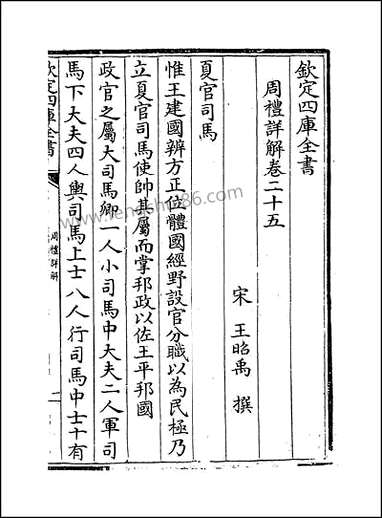 欽定四庫全書
周禮詳解卷二十五
宋 王昭禹 撰
夏官司馬
惟王建國辨方正位體國經野設官分職以為民極乃
立夏官司馬使帥其屬而掌邦政以佐王平邦國
政官之屬大司馬卿一人小司馬中大夫二人軍司
馬下大夫四人輿司馬上士八人行司馬中士十有
欽定四庫全書
周禮詳解
一